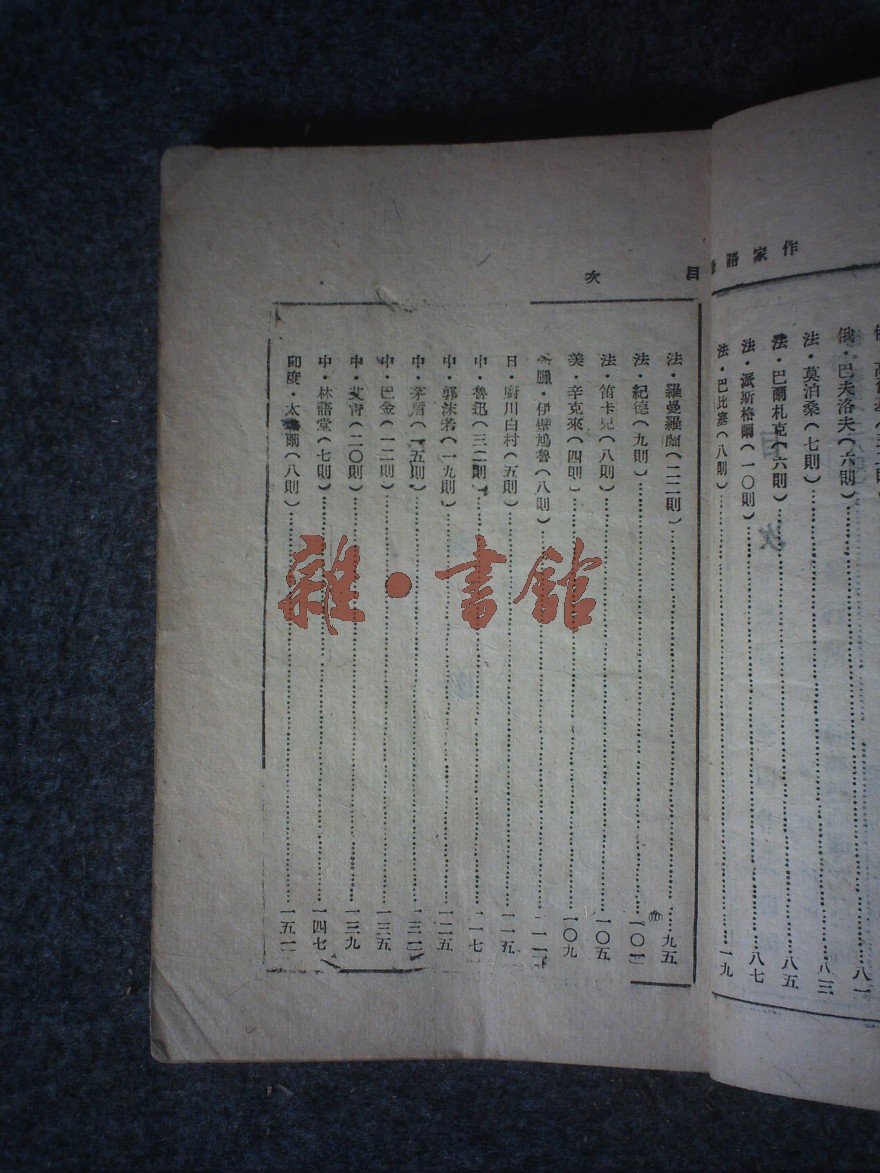 作家語
俄・巴夫洛夫(六則)……八一
法・莫泊桑(七則)……八三
法・巴爾札克(六則)……八五
法・派斯格爾(一〇則)……八七
法・巴比塞(八則)……一九
目 次
法・羅曼羅蘭(二二則)……九五
法・紀德(九則)……一〇一
法・笛卡兒(八則)……一〇五
美・辛克來(四則)……一〇九
臘・伊壁鳩魯(八則)……一一
日・廚川白村(五則)……一一五
中・魯迅(三二則)……一一七
中・郭沫若(一九則)……一二五
中・茅盾(一五則)……一三一
中・巴金(一二則)……一三五
中・艾青(二〇則)……一三九
中・林語堂(七則)……一四七
印度・太爾(八則)……一五一
雜・書館